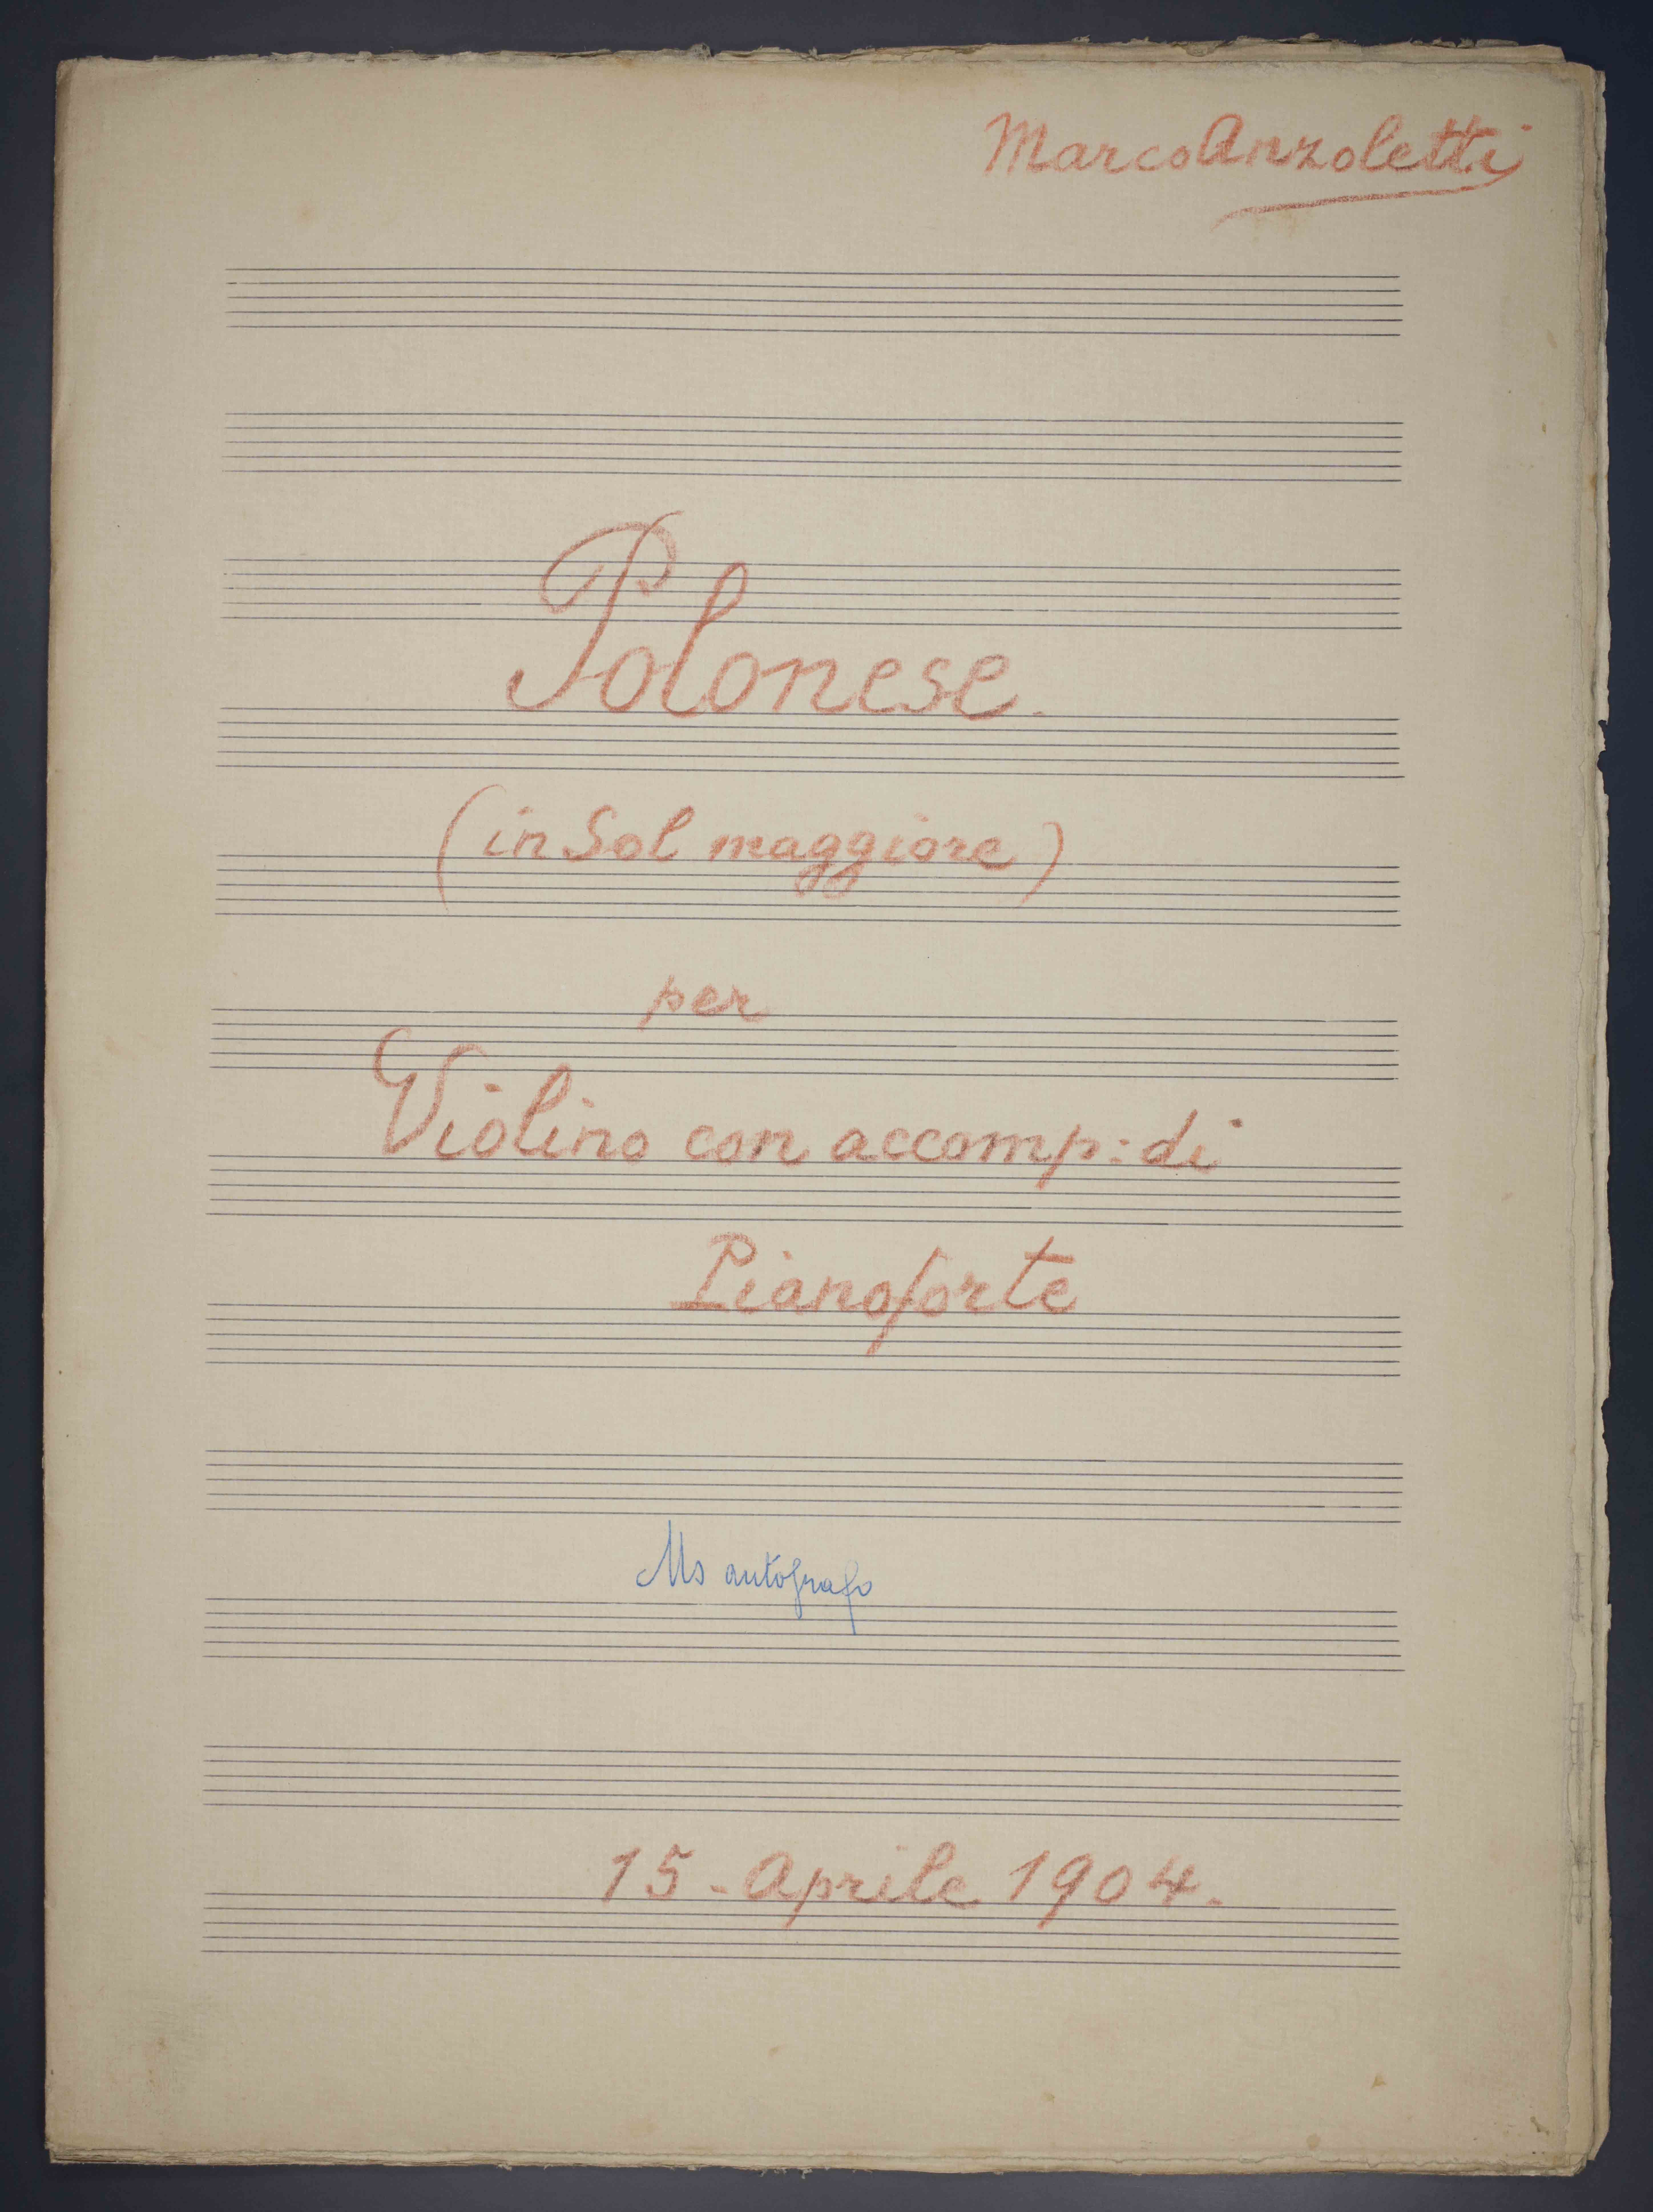 Marco Anzoletti
Polonese.
(in Sol maggiore)
per
Violino con accomp: di
Pianoforte
Ms autografo
15 - Aprile 1904.